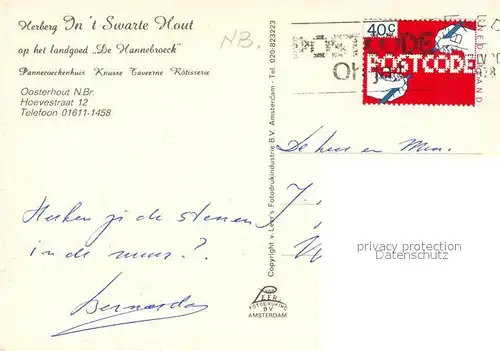 Herberg In 't Swarte Hout
op het landgoed „De Hannebroeck"
Pannecoeckenhuis Knusse Taverne Rôtisserie
Oosterhout N.Br.
Hoevestraat 12
Telefoon 01611-1458
NB.
Copyright v. Leer's Fotodrukindustrie B.V. Amsterdam - Tel. 020-823223
40c
POSTCODE
NEDERLAND
De heer en Mevr.
Herken je de stenen
in de muur?
Bernarda
LEER
FOTODRUKIND
BV
AMSTERDAM
privacy protection
Datenschutz